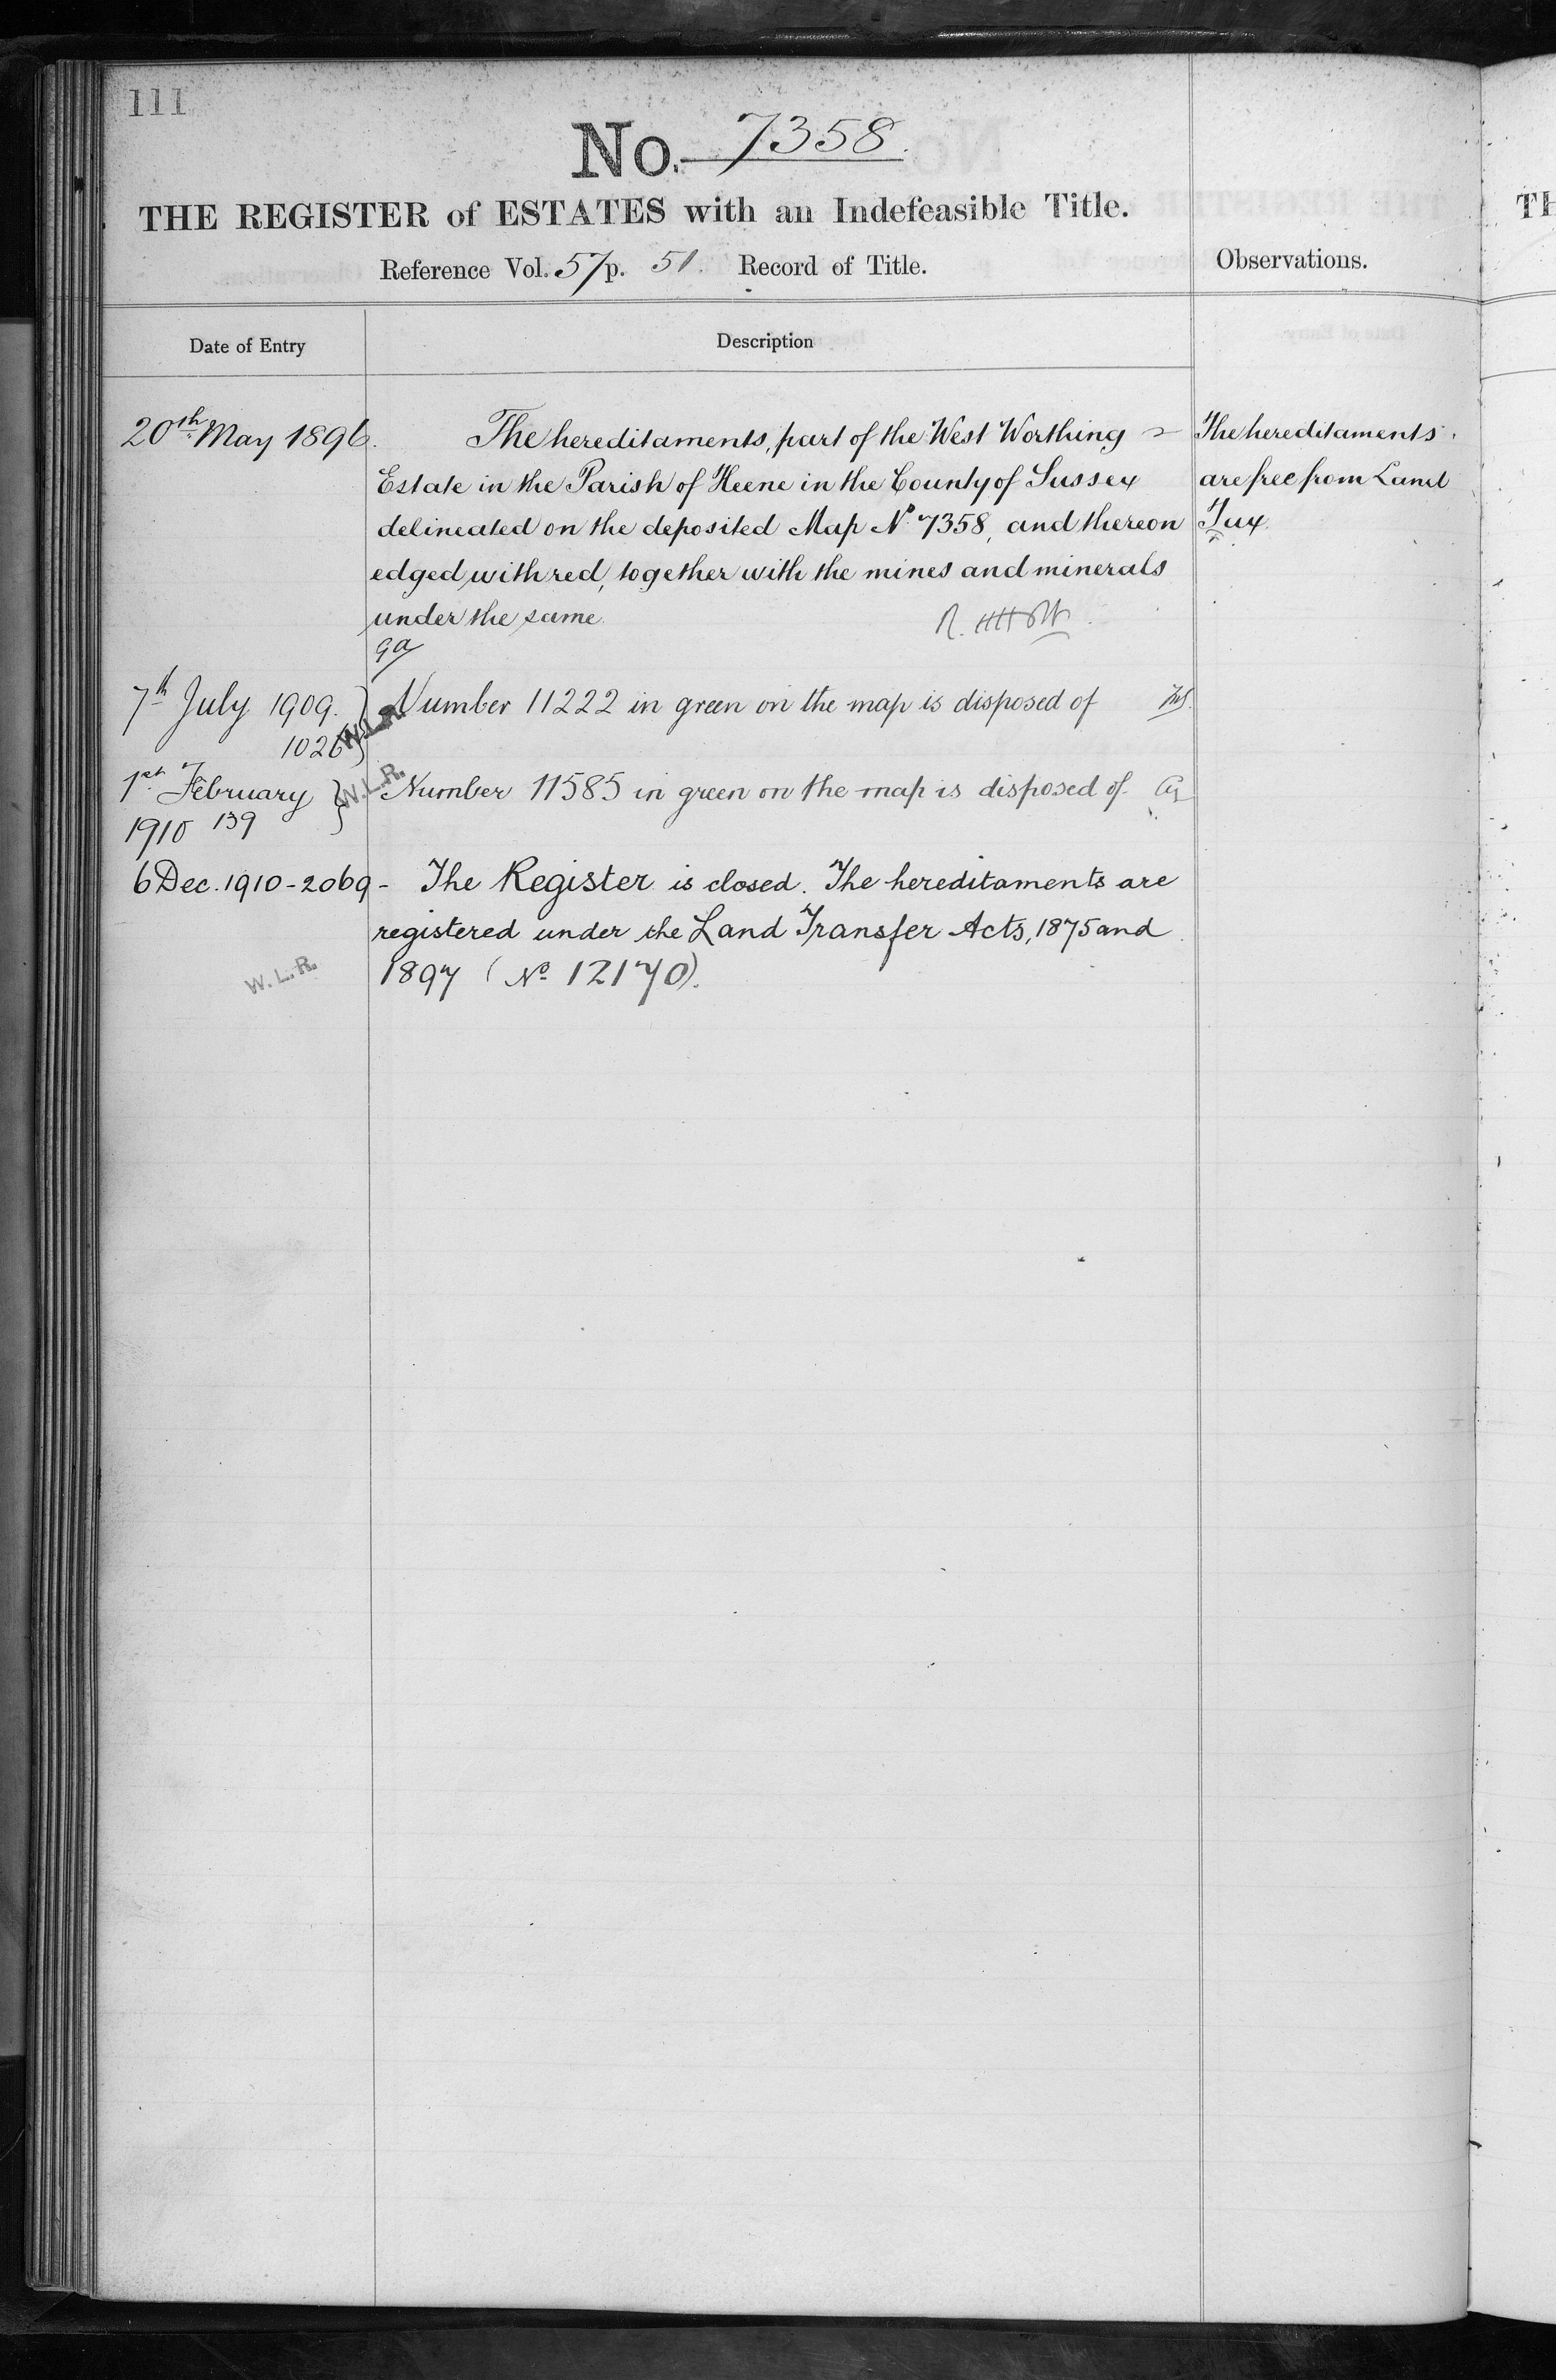 111
No. 7358.
THE REGISTER of ESTATES with an Indefeasible Title.
Reference Vol. 57 p. 51. Record of Title.
Observations.
Date of Entry
Description
20th May 1896.
The hereditaments, part of the West Worthing
Estate in the Parish of Heene in the County of Sussex
delineated on the deposited Map No 7358, and thereon
edged with red, together with the mines and minerals
under the same.
The hereditaments
are free from Land
Tax.
7th July 1909.
1026
W.L.R.
Number 11222 in green on the map is disposed of
1st February
1910 139
W.L.R.
Number 11585 in green on the map is disposed of.
6 Dec. 1910 - 2069 -
The Register is closed. The hereditaments are
registered under the Land Transfer Acts, 1875 and
1897 (No 12170).
W.L.R.
TH